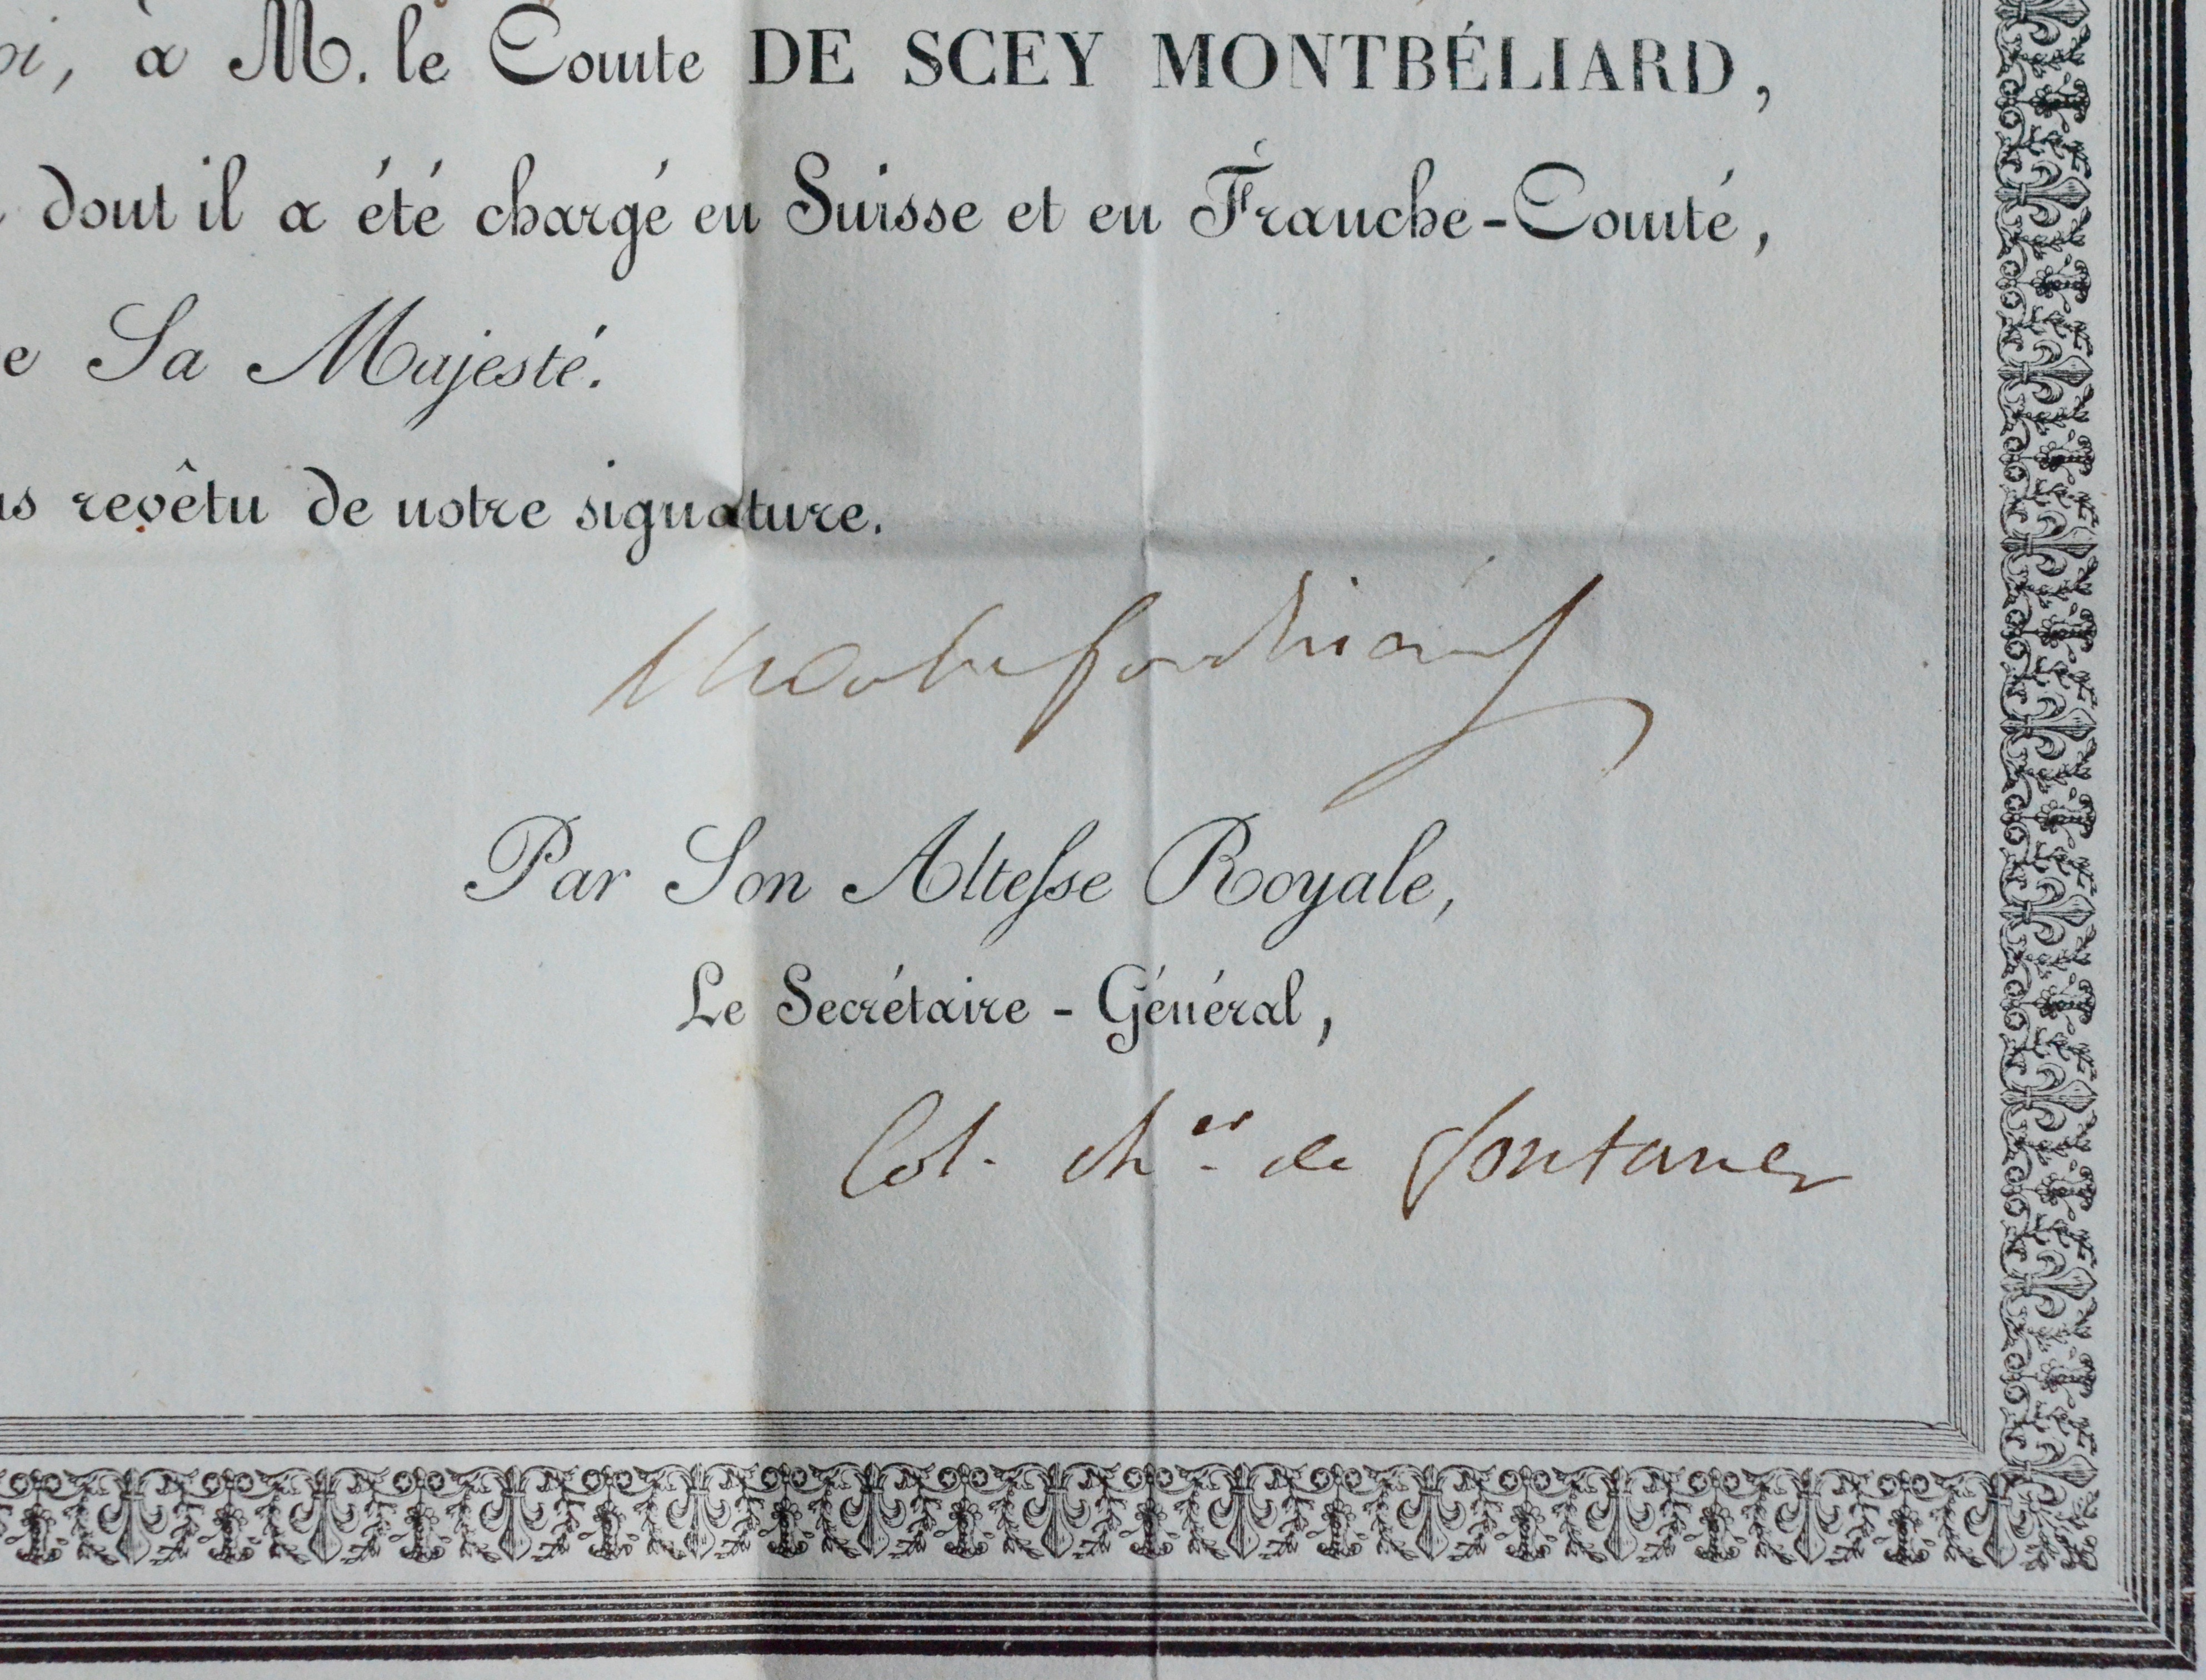 oi, à M. le Comte DE SCEY MONTBÉLIARD,
dont il a été chargé en Suisse et en Franche-Comté,
e Sa Majesté.
us revêtu de notre signature.
Par Son Altesse Royale,
Le Secrétaire - Général,
Col. Ch.er de fontanes